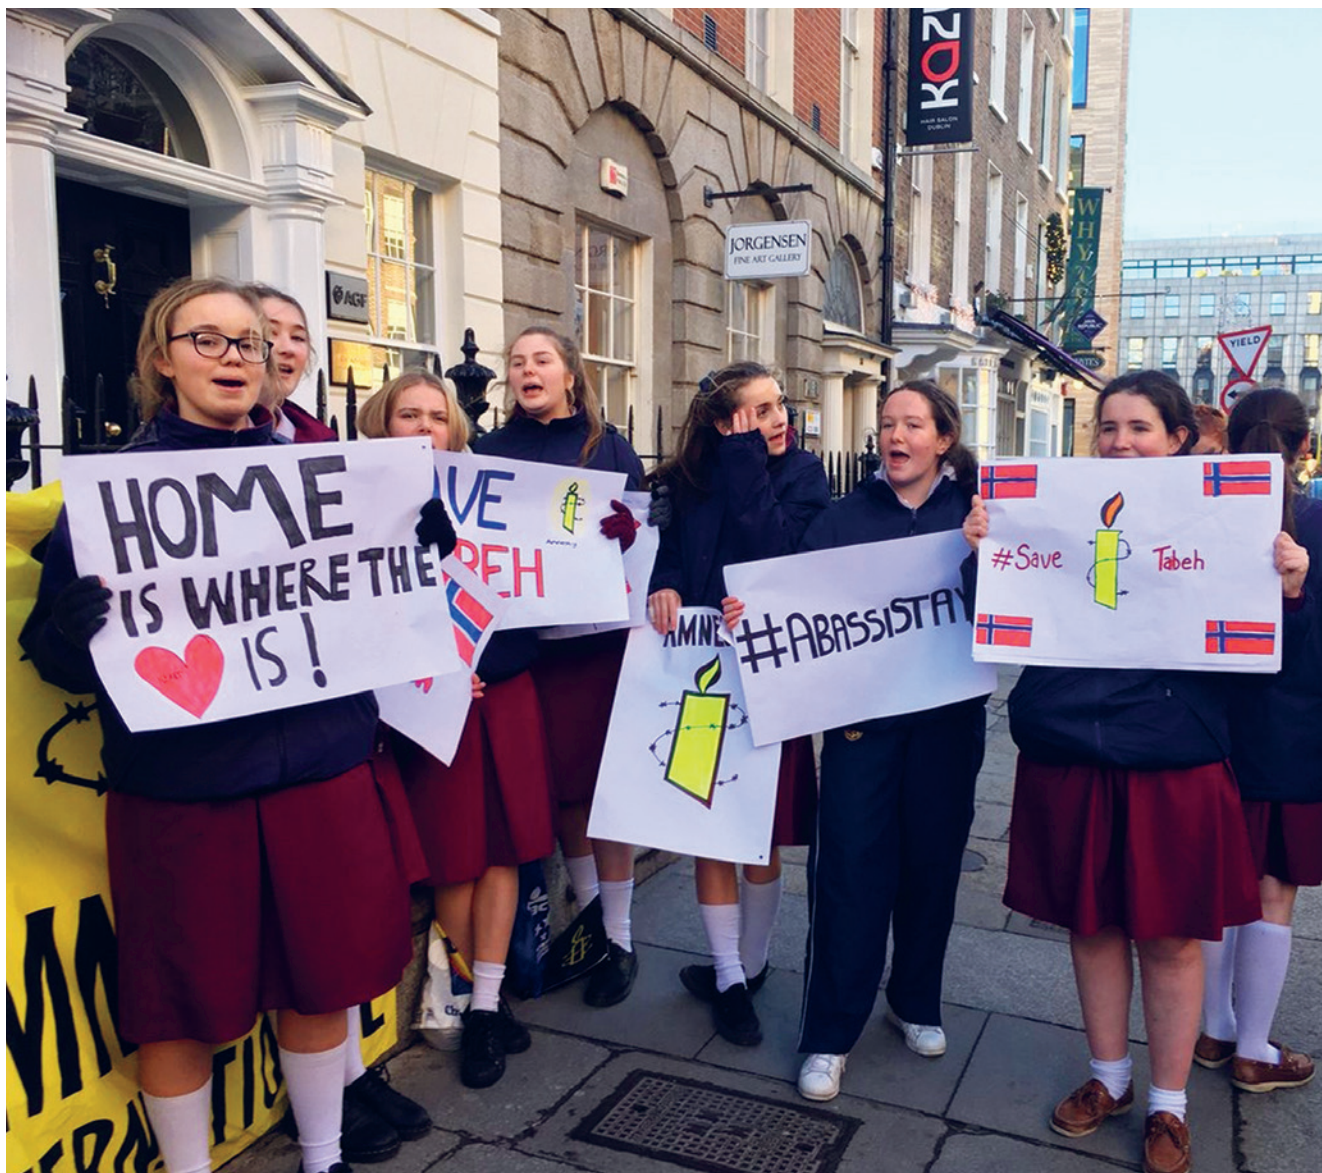 KAZU
HAIR SALON
DUBLIN
JORGENSEN
FINE ART GALLERY
WHY
YIELD
AGF
HOME
IS WHERE THE
IS!
AVE
BEH
Amnesty
AMNE
#ABASSISTAY
#Save
Tabeh